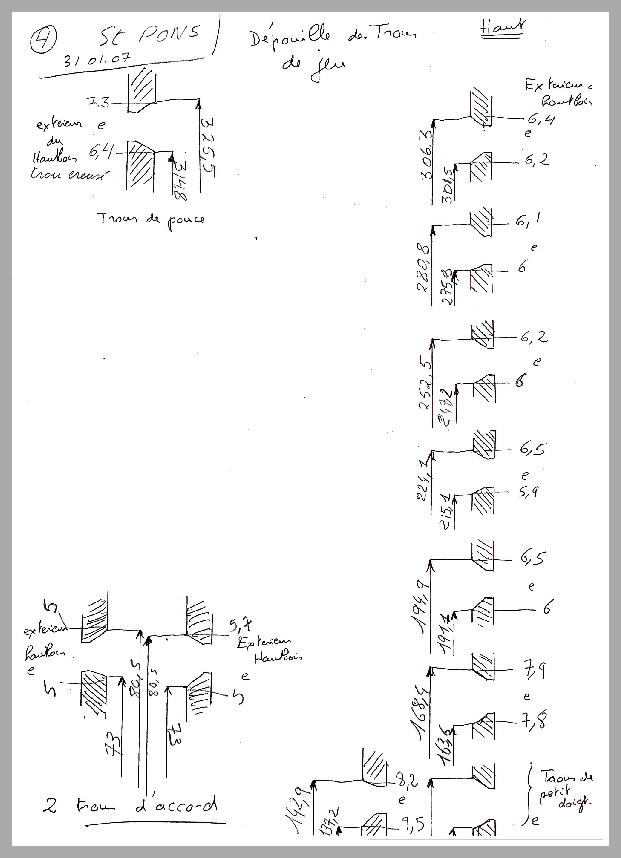 4
St PONS
31.01.07
Dépouille des Trous
de jeu
Haut
7,3
exterieur e
du
Hautbois 6,4
trou creusé
325,5
318
Trous de pouce
Exterieur e
Hautbois
306.3
6,4
e
301,5
6,2
280,8
6,1
e
275,8
6
252,5
6,2
e
247,2
6
221,1
6,5
e
215,1
5,9
194,9
6,5
e
191,1
6
168,4
7,9
e
163,6
7,8
142,9
8,2
e
137,2
9,5
Trous de
petit
doigt.
e
5
exterieur
hautbois
e
5
80,5
73
80,5
73
5,7
Exterieur
Hautbois
e
5
2 trous d'accord